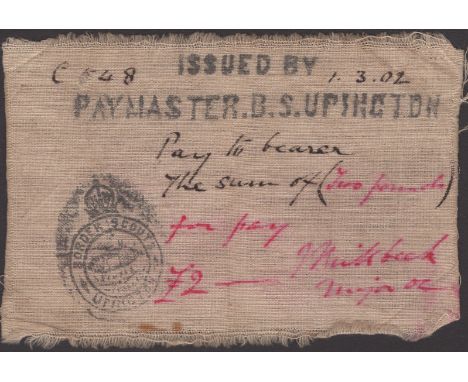 C 548 ISSUED BY 1.3.02
PAYMASTER.B.S.UPINGTON
Pay to bearer
the sum of (Two pounds)
for pay
£2 —
Major OC
BORDER SCOUTS
UPINGTON